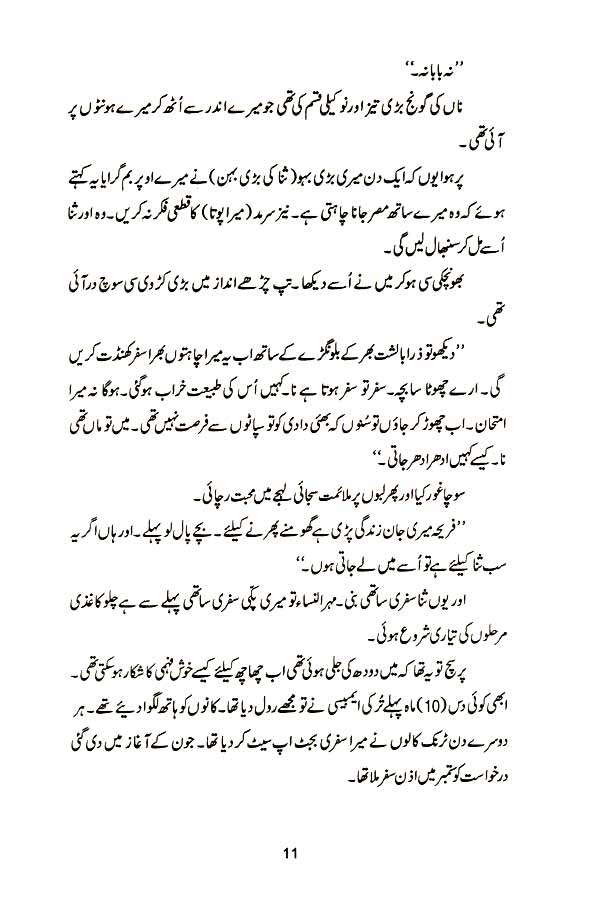 ’’نہ بابا نہ۔‘‘
ناں کی گونج بڑی تیز اور نوکیلی قسم کی تھی جو میرے اندر سے اُٹھ کر میرے ہونٹوں پر
آئی تھی۔
پر ہوا یوں کہ ایک دن میری بڑی بہو (ثنا کی بڑی بہن) نے میرے اوپر بم گرایا یہ کہتے
ہوئے کہ وہ میرے ساتھ مصر جانا چاہتی ہے۔ نیز سرمد (میرا پوتا) کا قطعی فکر نہ کریں۔ وہ اور ثنا
اُسے مل کر سنبھال لیں گی۔
بھونچکی سی ہو کر میں نے اُسے دیکھا۔ تپ چڑھے انداز میں بڑی کڑوی سی سوچ در آئی
تھی۔
’’دیکھو تو ذرا بالشت بھر کے بلونگڑے کے ساتھ اب یہ میرا چاہتوں بھرا سفر کھنڈت کریں
گی۔ ارے چھوٹا سا بچہ۔ سفر تو سفر ہوتا ہے نا۔ کہیں اُس کی طبیعت خراب ہو گئی۔ ہو گا نہ میرا
امتحان۔ اب چھوڑ کر جاؤں تو سُنوں کہ بھئی دادی کو تو سپاٹوں سے فرصت نہیں تھی۔ میں تو ماں تھی
نا۔ کیسے کہیں ادھر ادھر جاتی۔‘‘
سوچا غور کیا اور پھر لبوں پر ملائمت سجائی لہجے میں محبت رچائی۔
’’فریحہ میری جان زندگی پڑی ہے گھومنے پھرنے کیلئے۔ بچے پال لو پہلے۔ اور ہاں اگر یہ
سب ثنا کیلئے ہے تو اُسے میں لے جاتی ہوں۔‘‘
اور یوں ثنا سفری ساتھی بنی۔ مہر النساء تو میری پکّی سفری ساتھی پہلے سے ہے چلو کاغذی
مرحلوں کی تیاری شروع ہوئی۔
پر سچ تو یہ تھا کہ میں دودھ کی جلی ہوئی تھی اب چھاچھ کیلئے کیسے خوش فہمی کا شکار ہو سکتی تھی۔
ابھی کوئی دس (10) ماہ پہلے تُرکی ایمبیسی نے تو مجھے رول دیا تھا۔ کانوں کو ہاتھ لگوا دیئے تھے۔ ہر
دوسرے دن ٹرنک کالوں نے میرا سفری بجٹ اپ سیٹ کر دیا تھا۔ جون کے آغاز میں دی گئی
درخواست کو ستمبر میں اذن سفر ملا تھا۔
11